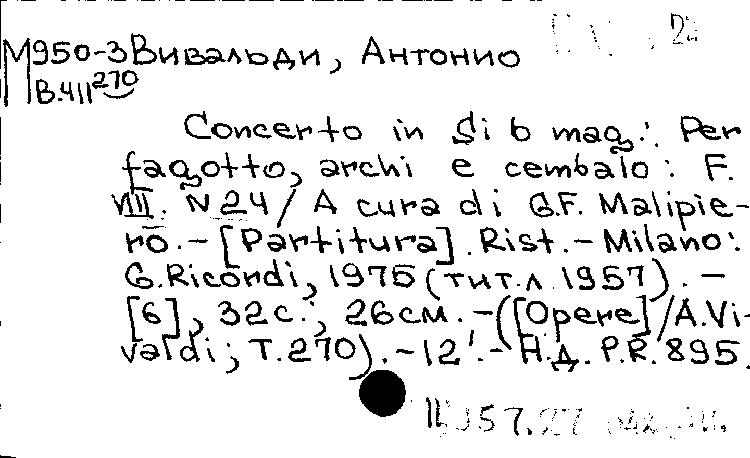 М950-3 Вивальди, Антонио
В.411 270
Concerto in Si b mag.: Per
fagotto, archi e cembalo: F.
VIII. N 24 / A cura di G.F. Malipie-
ro. - [Partitura]. Rist. - Milano:
G. Ricordi, 1975 (тит.л. 1957). -
[6], 32 с.; 26 см. - ([Opere] / A. Vi-
valdi; Т. 270). - 12'. - Н.д. P.R. 895.